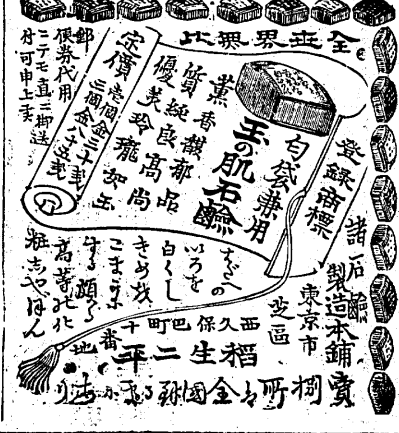 全世界無比
登録商標
匂袋兼用
玉の肌石鹸
薫香馥郁
質純良高品
優美玲瓏如玉
定價
壱個金三十銭
三個金八十五銭
郵便券代用
ニテモ直ニ御送
付可申上候
はだへの
いろを
白くし
きめを
こまかに
する頗る
高等の化
粧志やぼん
諸石鹸
製造本舗
東京市
芝區
西久保巴町十番地
稲生二平
賣捌所
全國